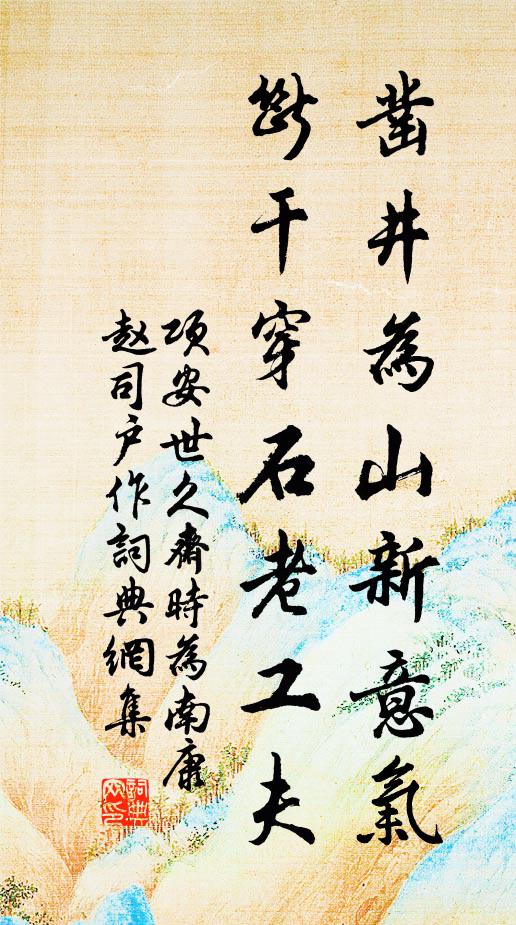 凿井為山新意氣
斷干穿石老工夫
项安世久齋時為南康
赵司户作詞典網集
詞典網印